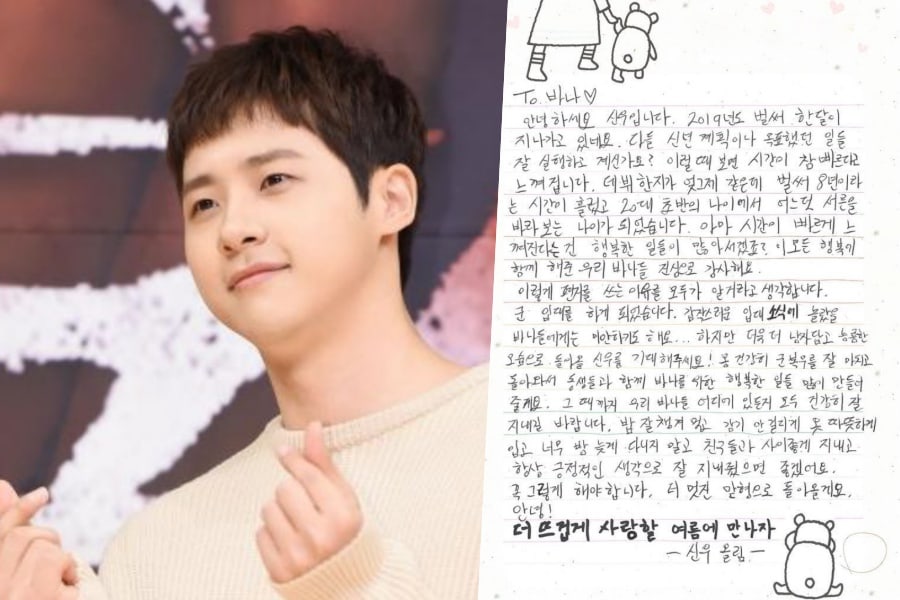 To. 바나♡
안녕하세요 신우입니다. 2019년도 벌써 한달이
지나가고 있네요. 다들 신년 계획이나 목표했던 일들
잘 실행하고 계신가요? 이럴 때 보면 시간이 참 빠르다고
느껴집니다. 데뷔한지가 엊그제 같은데 벌써 8년이라
는 시간이 흘렀고 20대 초반의 나이에서 어느덧 서른을
바라보는 나이가 되었습니다. 아마 시간이 빠르게 느
껴진다는건 행복한 일들이 많아서겠죠? 이 모든 행복에
함께 해준 우리 바나들 진심으로 감사해요.
이렇게 편지를 쓰는 이유를 모두가 알거라고 생각합니다.
군 입대를 하게 되었습니다. 갑작스러운 입대 소식에 놀랐을
바나들에게는 미안하기도 해요... 하지만 더욱 더 남자답고 늠름한
모습으로 돌아올 신우를 기대해주세요! 몸 건강히 군복무를 잘 마치고
돌아와서 동생들과 함께 바나를 위한 행복한 일들 많이 만들어
줄게요. 그 때까지 우리 바나들 어디에 있든지 모두 건강히 잘
지내길 바랍니다. 밥 잘 챙겨 먹고 감기 안걸리게 옷 따뜻하게
입고 너무 밤 늦게 다니지 말고 친구들과 사이좋게 지내고
항상 긍정적인 생각으로 잘 지내줬으면 좋겠어요.
꼭 그렇게 해야합니다. 더 멋진 맏형으로 돌아올게요.
안녕!
더 뜨겁게 사랑할 여름에 만나자
- 신우 올림 -